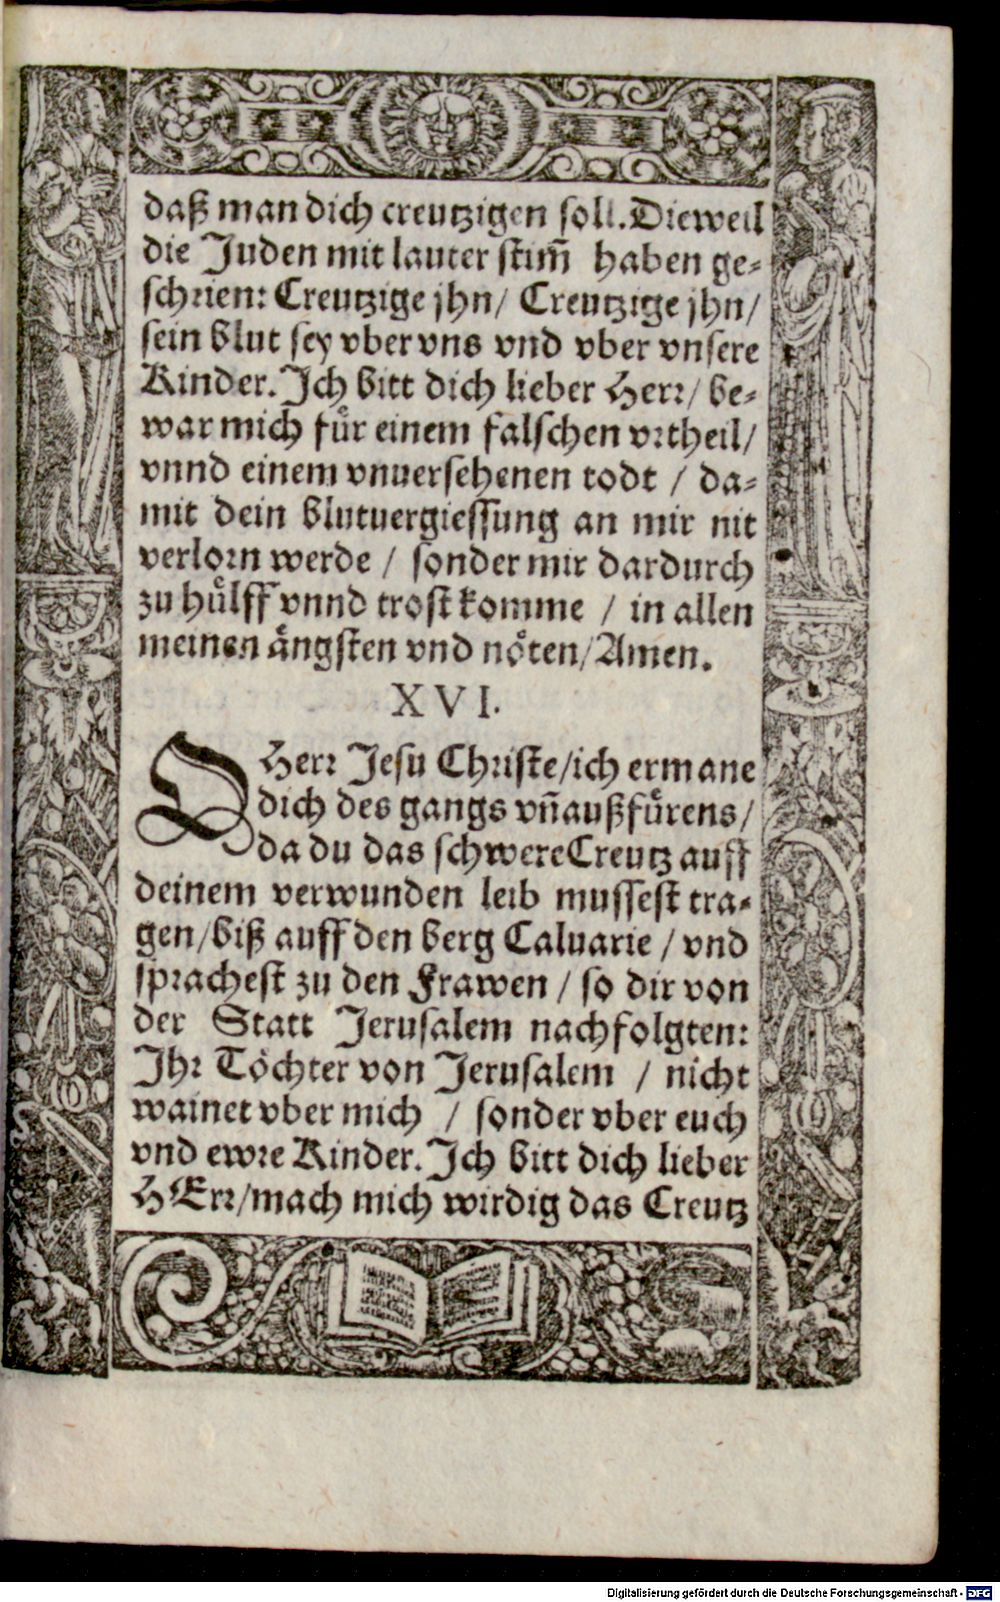 daß man dich creutzigen soll. Dieweil
die Juden mit lauter stim̃ haben ge-
schrien: Creutzige jhn/ Creutzige jhn/
sein blut sey vber vns vnd vber vnsere
Kinder. Ich bitt dich lieber Herr/ be-
war mich für einem falschen vrtheil/
vnnd einem vnuersehenen todt / da-
mit dein blutuergiessung an mir nit
verlorn werde / sonder mir dardurch
zu hülff vnnd trost komme / in allen
meinen ängsten vnd nöten/ Amen.
XVI.
O Herr Jesu Christe/ich ermane
dich des gangs vn̄ außfürens/
da du das schwere Creutz auff
deinem verwunden leib mussest tra-
gen/biß auff den berg Caluarie / vnd
sprachest zu den Frawen / so dir von
der Statt Jerusalem nachfolgten:
Ihr Töchter von Jerusalem / nicht
wainet vber mich / sonder vber euch
vnd ewre Kinder. Ich bitt dich lieber
HErr/mach mich wirdig das Creutz
Digitalisierung gefördert durch die Deutsche Forschungsgemeinschaft - DFG